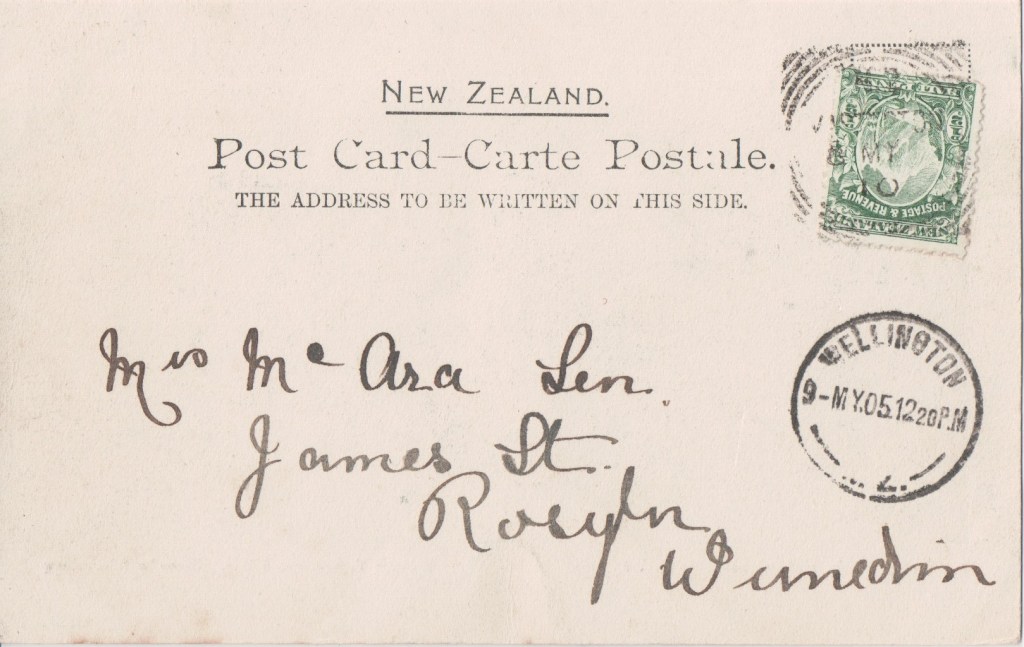 NEW ZEALAND.
Post Card–Carte Postale.
THE ADDRESS TO BE WRITTEN ON THIS SIDE.
MY
10
POSTAGE & REVENUE
NEW ZEALAND
WELLINGTON
9-MY.05.12 20 P.M
. Z.
Mrs Mc Ara Sen.
James St.
Roslyn
Dunedin